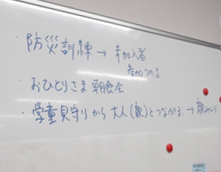 ・防災訓練 → 未加入者
参加つのる
・おひとりさま 朝食会
・学童見守りから大人(親)とつながる →